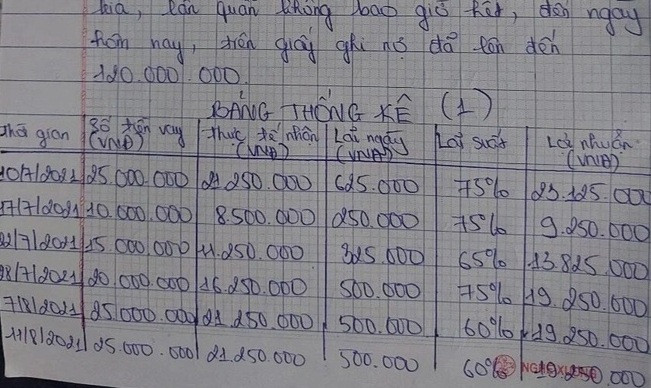 kia, lần quần không bao giờ hết, đến ngày
hôm nay, trên giấy ghi nợ đã lên đến
120.000.000.
BẢNG THỐNG KÊ (1)
Thời gian Số tiền vay (VNĐ) Thực tế nhận (VNĐ) Lãi ngày (VNĐ) Lãi suất Lợi nhuận (VNĐ)
10/7/2021 25.000.000 21.250.000 625.000 75% 23.125.000
17/7/2021 10.000.000 8.500.000 250.000 75% 9.250.000
22/7/2021 15.000.000 11.250.000 325.000 65% 13.825.000
28/7/2021 20.000.000 16.250.000 500.000 75% 19.250.000
7/8/2021 25.000.000 21.250.000 500.000 60% 19.250.000
11/8/2021 25.000.000 21.250.000 500.000 60% 19.250.000